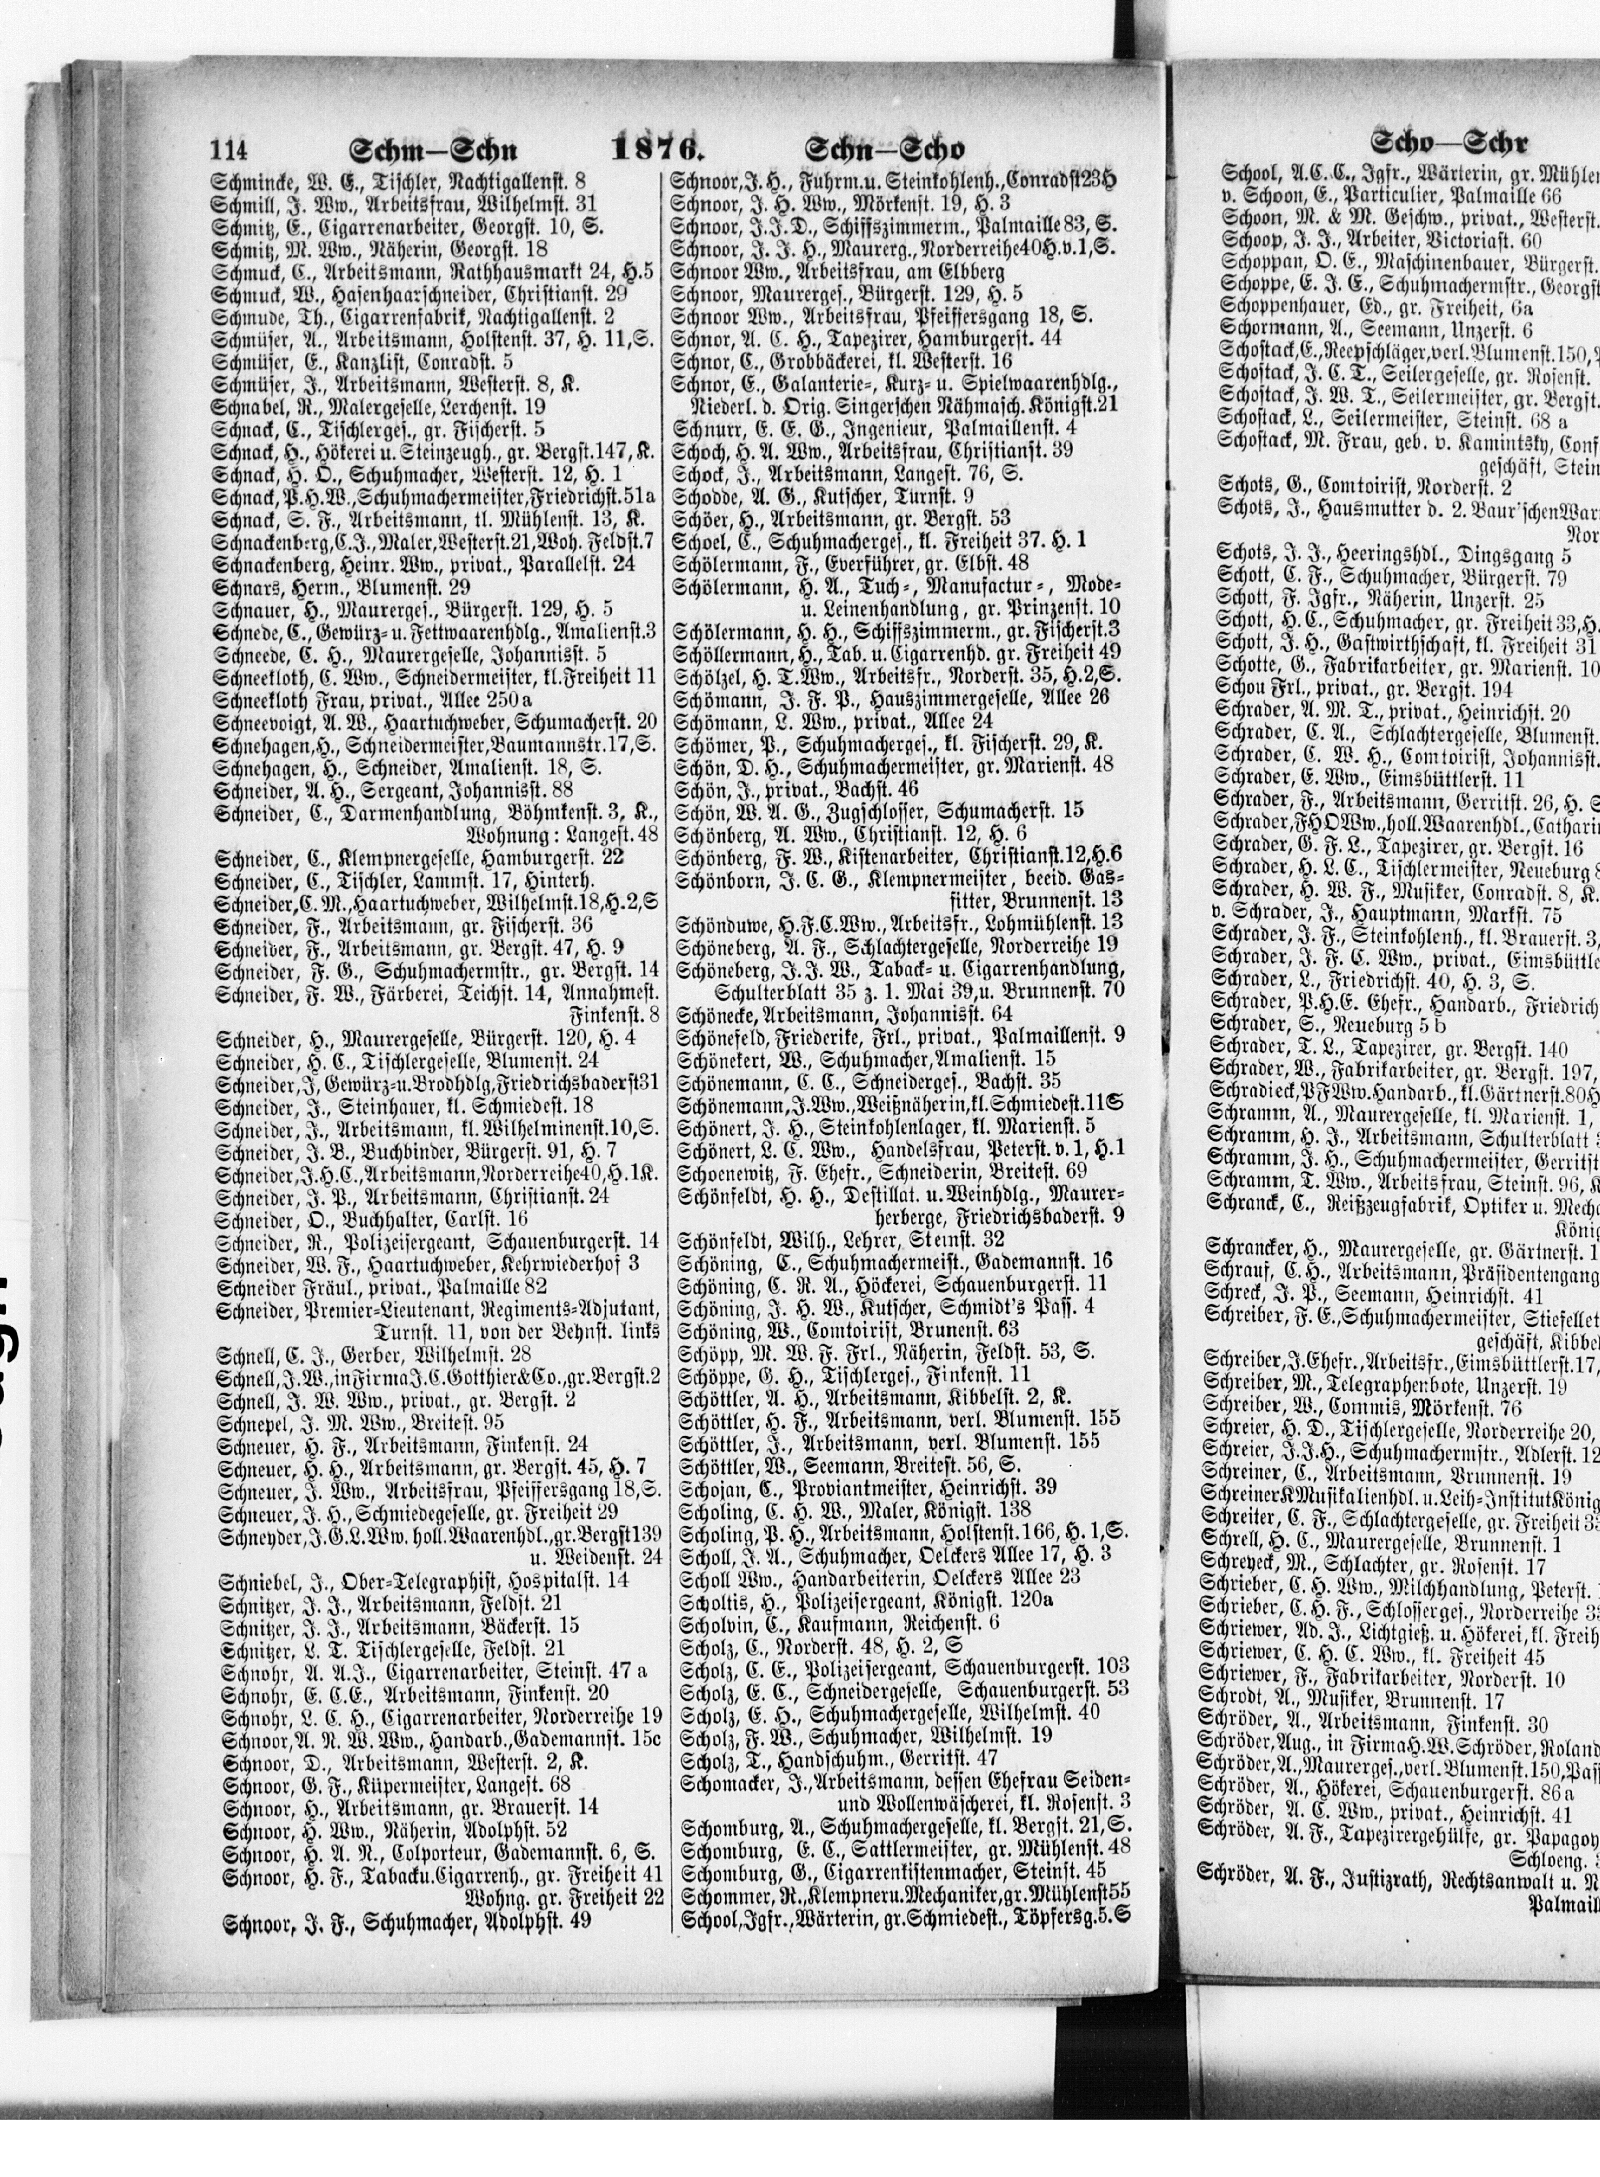 114
Schm—Schn
1876.
Schn—Scho
Schmincke, W. E., Tischler, Nachtigallenst. 8
Schmill, J. Ww., Arbeitsfrau, Wilhelmst. 31
Schmitz, E., Cigarrenarbeiter, Georgst. 10, S.
Schmitz, M. Ww., Näherin, Georgst. 18
Schmuck, C., Arbeitsmann, Rathhausmarkt 24, H.5
Schmuck, W., Hasenhaarschneider, Christianst. 29
Schmude, Th., Cigarrenfabrik, Nachtigallenst. 2
Schmüser, A., Arbeitsmann, Holstenst. 37, H. 11,S.
Schmüser, E., Kanzlist, Conradst. 5
Schmüser, J., Arbeitsmann, Westerst. 8, K.
Schnabel, R., Malergeselle, Lerchenst. 19
Schnack, C., Tischlerges., gr. Fischerst. 5
Schnack, H., Hökerei u. Steinzeugh., gr. Bergst.147, K.
Schnack, H. O., Schuhmacher, Westerst. 12, H. 1
Schnack,P.H.W.,Schuhmachermeister,Friedrichst.51a
Schnack, S. F., Arbeitsmann, tl. Mühlenst. 13, K.
Schnackenberg,C.J.,Maler,Westerst.21,Woh. Feldst.7
Schnackenberg, Heinr. Ww., privat., Parallelst. 24
Schnars, Herm., Blumenst. 29
Schnauer, H., Maurerges., Bürgerst. 129, H. 5
Schnede, C., Gewürz= u. Fettwaarenhdlg., Amalienst.3
Schneede, C. H., Maurergeselle, Johannisst. 5
Schneekloth, C. Ww., Schneidermeister, kl.Freiheit 11
Schneekloth Frau, privat., Allee 250a
Schneevoigt, A. W., Haartuchweber, Schumacherst. 20
Schnehagen,H., Schneidermeister,Baumannstr.17,S.
Schnehagen, H., Schneider, Amalienst. 18, S.
Schneider, A. H., Sergeant, Johannisst. 88
Schneider, C., Darmenhandlung, Böhmkenst. 3, K.,
Wohnung: Langest. 48
Schneider, C., Klempnergeselle, Hamburgerst. 22
Schneider, C., Tischler, Lammst. 17, Hinterh.
Schneider,C.M.,Haartuchweber, Wilhelmst.18,H.2,S
Schneider, F., Arbeitsmann, gr. Fischerst. 36
Schneider, F., Arbeitsmann, gr. Bergst. 47, H. 9
Schneider, F. G., Schuhmachermstr., gr. Bergst. 14
Schneider, F. W., Färberei, Teichst. 14, Annahmest.
Finkenst. 8
Schneider, H., Maurergeselle, Bürgerst. 120, H. 4
Schneider, H. C., Tischlergeselle, Blumenst. 24
Schneider,J,Gewürz=u.Brodhdlg,Friedrichsbaderst31
Schneider, J., Steinhauer, kl. Schmiedest. 18
Schneider, J., Arbeitsmann, kl. Wilhelminenst.10,S.
Schneider, J. B., Buchbinder, Bürgerst. 91, H. 7
Schneider,J.H.C.,Arbeitsmann,Norderreihe40,H.1K.
Schneider, J. P., Arbeitsmann, Christianst. 24
Schneider, O., Buchhalter, Carlst. 16
Schneider, R., Polizeisergeant, Schauenburgerst. 14
Schneider, W. F., Haartuchweber, Kehrwiederhof 3
Schneider Fräul., privat., Palmaille 82
Schneider, Premier=Lieutenant, Regiments=Adjutant,
Turnst. 11, von der Behnst. links
Schnell, C. J., Gerber, Wilhelmst. 28
Schnell,J.W.,inFirmaJ.C.Gotthier&Co.,gr.Bergst.2
Schnell, J. W. Ww., privat., gr. Bergst. 2
Schnepel, J. M. Ww., Breitest. 95
Schneuer, H. F., Arbeitsmann, Finkenst. 24
Schneuer, H. H., Arbeitsmann, gr. Bergst. 45, H. 7
Schneuer, J. Ww., Arbeitsfrau, Pfeiffersgang 18,S.
Schneuer, J. H., Schmiedegeselle, gr. Freiheit 29
Schneyder,J.G.L.Ww. holl.Waarenhdl.,gr.Bergst139
u. Weidenst. 24
Schniebel, J., Ober=Telegraphist, Hospitalst. 14
Schnitzer, J. J., Arbeitsmann, Feldst. 21
Schnitzer, J. J., Arbeitsmann, Bäckerst. 15
Schnitzer, L. T. Tischlergeselle, Feldst. 21
Schnohr, A. A.J., Cigarrenarbeiter, Steinst. 47 a
Schnohr, E. C.E., Arbeitsmann, Finkenst. 20
Schnohr, L. C. H., Cigarrenarbeiter, Norderreihe 19
Schnoor,A. N. W. Ww., Handarb.,Gademannst. 15c
Schnoor, D., Arbeitsmann, Westerst. 2, K.
Schnoor, G. F., Küpermeister, Langest. 68
Schnoor, H., Arbeitsmann, gr. Brauerst. 14
Schnoor, H. Ww., Näherin, Adolphst. 52
Schnoor, H. A. N., Colporteur, Gademannst. 6, S.
Schnoor, H. F., Tabacku.Cigarrenh., gr. Freiheit 41
Wohng. gr. Freiheit 22
Schnoor, J. F., Schuhmacher, Adolphst. 49
Schnoor,J. H., Fuhrm.u. Steinkohlenh.,Conradst23H
Schnoor, J. H. Ww., Mörkenst. 19, H. 3
Schnoor, J.J.D., Schiffszimmerm., Palmaille 83, S.
Schnoor, J. J. H., Maurerg., Norderreihe40H.v.1,S.
Schnoor Ww., Arbeitsfrau, am Elbberg
Schnoor, Maurerges., Bürgerst. 129, H. 5
Schnoor Ww., Arbeitsfrau, Pfeiffersgang 18, S.
Schnor, A. C. H., Tapezirer, Hamburgerst. 44
Schnor, C., Grobbäckerei, kl. Westerst. 16
Schnor, E., Galanterie=, Kurz= u. Spielwaarenhdlg.,
Niederl. d. Orig. Singerschen Nähmasch. Königst.21
Schnurr, E. E. G., Ingenieur, Palmaillenst. 4
Schoch, H. A. Ww., Arbeitsfrau, Christianst. 39
Schock, J., Arbeitsmann, Langest. 76, S.
Schodde, A. G., Kutscher, Turnst. 9
Schöer, H., Arbeitsmann, gr. Bergst. 53
Schoel, C., Schuhmacherges., kl. Freiheit 37. H. 1
Schölermann, F., Everführer, gr. Elbst. 48
Schölermann, H. A., Tuch=, Manufactur=, Mode=
u. Leinenhandlung, gr. Prinzenst. 10
Schölermann, H. H., Schiffszimmerm., gr. Fischerst.3
Schöllermann, H., Tab. u. Cigarrenhd. gr. Freiheit 49
Schölzel, H. T.Ww., Arbeitsfr., Norderst. 35, H.2,S.
Schömann, J. F. P., Hauszimmergeselle, Allee 26
Schömann, L. Ww., privat., Allee 24
Schömer, P., Schuhmacherges., kl. Fischerst. 29, K.
Schön, D. H., Schuhmachermeister, gr. Marienst. 48
Schön, J., privat., Bachst. 46
Schön, W. A. G., Zugschlosser, Schumacherst. 15
Schönberg, A. Ww., Christianst. 12, H. 6
Schönberg, F. W., Kistenarbeiter, Christianst.12,H.6
Schönborn, J. C. G., Klempnermeister, beeid. Gas=
fitter, Brunnenst. 13
Schönduwe, H.F.C.Ww., Arbeitsfr., Lohmühlenst. 13
Schöneberg, A. F., Schlachtergeselle, Norderreihe 19
Schöneberg, J. J. W., Taback= u. Cigarrenhandlung,
Schulterblatt 35 z. 1. Mai 39,u. Brunnenst. 70
Schönecke, Arbeitsmann, Johannisst. 64
Schönefeld, Friederike, Frl., privat., Palmaillenst. 9
Schönekert, W., Schuhmacher,Amalienst. 15
Schönemann, C. C., Schneiderges., Bachst. 35
Schönemann,J.Ww.,Weißnäherin,kl.Schmiedest.11S
Schönert, J. H., Steinkohlenlager, kl. Marienst. 5
Schönert, L. C. Ww., Handelsfrau, Peterst. v. 1, H.1
Schoenewitz, F. Ehefr., Schneiderin, Breitest. 69
Schönfeldt, H. H., Destillat. u.Weinhdlg., Maurer=
herberge, Friedrichsbaderst. 9
Schönfeldt, Wilh., Lehrer, Steinst. 32
Schöning, C., Schuhmachermeist., Gademannst. 16
Schöning, C. R. A., Höckerei, Schauenburgerst. 11
Schöning, J. H. W., Kutscher, Schmidt's Pass. 4
Schöning, W., Comtoirist, Brunenst. 63
Schöpp, M. W. F. Frl., Näherin, Feldst. 53, S.
Schöppe, G. H., Tischlerges., Finkenst. 11
Schöttler, A. H., Arbeitsmann, Kibbelst. 2, K.
Schöttler, H. F., Arbeitsmann, verl. Blumenst. 155
Schöttler, J., Arbeitsmann, verl. Blumenst. 155
Schöttler, W., Seemann, Breitest. 56, S.
Schojan, C., Proviantmeister, Heinrichst. 39
Scholing, C. H. W., Maler, Königst. 138
Scholing, P. H., Arbeitsmann, Holstenst.166, H. 1,S.
Scholl, J. A., Schuhmacher, Oelckers Allee 17, H. 3
Scholl Ww., Handarbeiterin, Oelckers Allee 23
Scholtis, H., Polizeisergeant, Königst. 120a
Scholvin, C., Kaufmann, Reichenst. 6
Scholz, C., Norderst. 48, H. 2, S
Scholz, C. E., Polizeisergeant, Schauenburgerst. 103
Scholz, E. C., Schneidergeselle, Schauenburgerst. 53
Scholz, E. H., Schuhmachergeselle, Wilhelmst. 40
Scholz, F. W., Schuhmacher, Wilhelmst. 19
Scholz, T., Handschuhm., Gerritst. 47
Schomacker, J.,Arbeitsmann, dessen Ehefrau Seiden=
und Wollenwäscherei, kl. Rosenst. 3
Schomburg, A., Schuhmachergeselle, kl. Bergst. 21,S.
Schomburg, E. C., Sattlermeister, gr. Mühlenst. 48
Schomburg, G., Cigarrenkistenmacher, Steinst. 45
Schommer, R.,Klempneru.Mechaniker,gr.Mühlenst55
School,Jgfr.,Wärterin, gr.Schmiedest., Töpfersg.5.S
Scho—Schr
School, A.C.C., Jgfr., Wärterin, gr.
v. Schoon, E., Particulier, Palmaille 66
Schoon, M. & M. Geschw., privat., Westerst.
Schoop, J. J., Arbeiter, Victoriast. 60
Schoppan, O. E., Maschinenbauer, Bürgerst.
Schoppe, E. J. E., Schuhmachermstr., Georgst
Schoppenhauer, Ed., gr. Freiheit, 6a
Schormann, A., Seemann, Unzerst. 6
Schostack,E.,Reepschläger,verl.Blumenst.150,
Schostack, J. C. T., Seilergeselle, gr. Rosenst.
Schostack, J. W. T., Seilermeister, gr. Bergst.
Schostack, L., Seilermeister, Steinst. 68 a
Schostack, M. Frau, geb. v. Kamintsky, Conf
geschäft, Stein
Schots, G., Comtoirist, Norderst. 2
Schots, J., Hausmutter d. 2. Baur'schenWar
Nor
Schots, J. J., Heeringshdl., Dingsgang 5
Schott, C. F., Schuhmacher, Bürgerst. 79
Schott, F. Jgfr., Näherin, Unzerst. 25
Schott, H.C., Schuhmacher, gr. Freiheit 33,H.
Schott, J. H., Gastwirthschaft, kl. Freiheit 31
Schotte, G., Fabrikarbeiter, gr. Marienst. 10
Schou Frl., privat., gr. Bergst. 194
Schrader, A. M. T., privat., Heinrichst. 20
Schrader, C. A., Schlachtergeselle, Blumenst.
Schrader, C. W. H., Comtoirist, Johannisst.
Schrader, E. Ww., Eimsbüttlerst. 11
Schrader, F., Arbeitsmann, Gerritst. 26, H.
Schrader,FHOWw.,holl.Waarenhdl.,Cathari
Schrader, G. F. L., Tapezirer, gr. Bergst. 16
Schrader, H. L. C., Tischlermeister, Neueburg
Schrader, H. W. F., Musiker, Conradst. 8, K.
v. Schrader, J., Hauptmann, Markst. 75
Schrader, J. F., Steinkohlenh., kl. Brauerst. 3,
Schrader, J. F. C. Ww., privat., Eimsbüttle
Schrader, L., Friedrichst. 40, H. 3, S.
Schrader, P.H.E. Ehefr., Handarb., Friedrich
Schrader, S., Neueburg 5 b
Schrader, T. L., Tapezirer, gr. Bergst. 140
Schrader, W., Fabrikarbeiter, gr. Bergst. 197,
Schradieck,PFWw.Handarb., kl.Gärtnerst.80H
Schramm, A., Maurergeselle, kl. Marienst. 1,
Schramm, H. J., Arbeitsmann, Schulterblatt
Schramm, J. H., Schuhmachermeister, Gerritst
Schramm, T. Ww., Arbeitsfrau, Steinst. 96,
Schranck, C., Reißzeugfabrik, Optiker u. Mech
König
Schrancker, H., Maurergeselle, gr. Gärtnerst. 1
Schrauf, C. H., Arbeitsmann, Präsidentengang
Schreck, J. P., Seemann, Heinrichst. 41
Schreiber, F. E.,Schuhmachermeister, Stiefellet
geschäft, Kibbel
Schreiber,J.Ehefr.,Arbeitsfr.,Eimsbüttlerst.17,
Schreiber, M., Telegraphenbote, Unzerst. 19
Schreiber, W., Commis, Mörkenst. 76
Schreier, H. D., Tischlergeselle, Norderreihe 20,
Schreier, J.J.H., Schuhmachermstr., Adlerst. 12
Schreiner, C., Arbeitsmann, Brunnenst. 19
SchreinerKMusikalienhdl. u.Leih=InstitutKönig
Schreiter, C. F., Schlachtergeselle, gr. Freiheit
Schrell, H. C., Maurergeselle, Brunnenst. 1
Schreyeck, M., Schlachter, gr. Rosenst. 17
Schrieber, C. H. Ww., Milchhandlung, Peterst.
Schrieber, C. H. F., Schlosserges., Norderreihe
Schriewer, Ad. J., Lichtgieß. u. Hökerei, kl. Freih
Schriewer, C. H. C. Ww., kl. Freiheit 45
Schriewer, F., Fabrikarbeiter, Norderst. 10
Schrodt, A., Musiker, Brunnenst. 17
Schröder, A., Arbeitsmann, Finkenst. 30
Schröder,Aug., in FirmaH.W.Schröder, Roland
Schröder,A.,Maurerges.,verl.Blumenst.150,Pass
Schröder, A., Hökerei, Schauenburgerst. 86 a
Schröder, A. C. Ww., privat., Heinrichst. 41
Schröder, A. F., Tapezirergehülfe, gr. Papagoy
Schloeng.
Schröder, A. F., Justizrath, Rechtsanwalt u. N
Palmaill